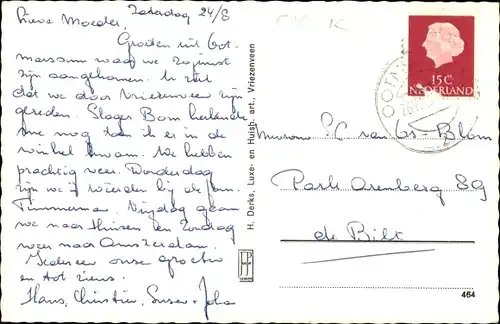 Zaterdag 24/8
Lieve Moeder,
Groeten uit Oot-
marssum waar we zojuist
zijn aangekomen. U ziet
dat we door Vriezenveen zijn
gereden. Slager Bom herkende
me nog toen ik er in de
winkel kwam. We hebben
prachtig weer. Donderdag
zijn we in Wierden bij de fam.
Timmerman. Vrijdag gaan
we naar Huisen en Zondag
weer naar Amsterdam.
Iedereen onze groeten
en tot ziens.
Hans, Christien, Suser + Joha
H. Derks, Luxe- en Huish. art., Vriezenveen
JP
15 C
NEDERLAND
OOTM
Mevrouw C van Os-Blom
Park Arenberg 89
de Bilt
464